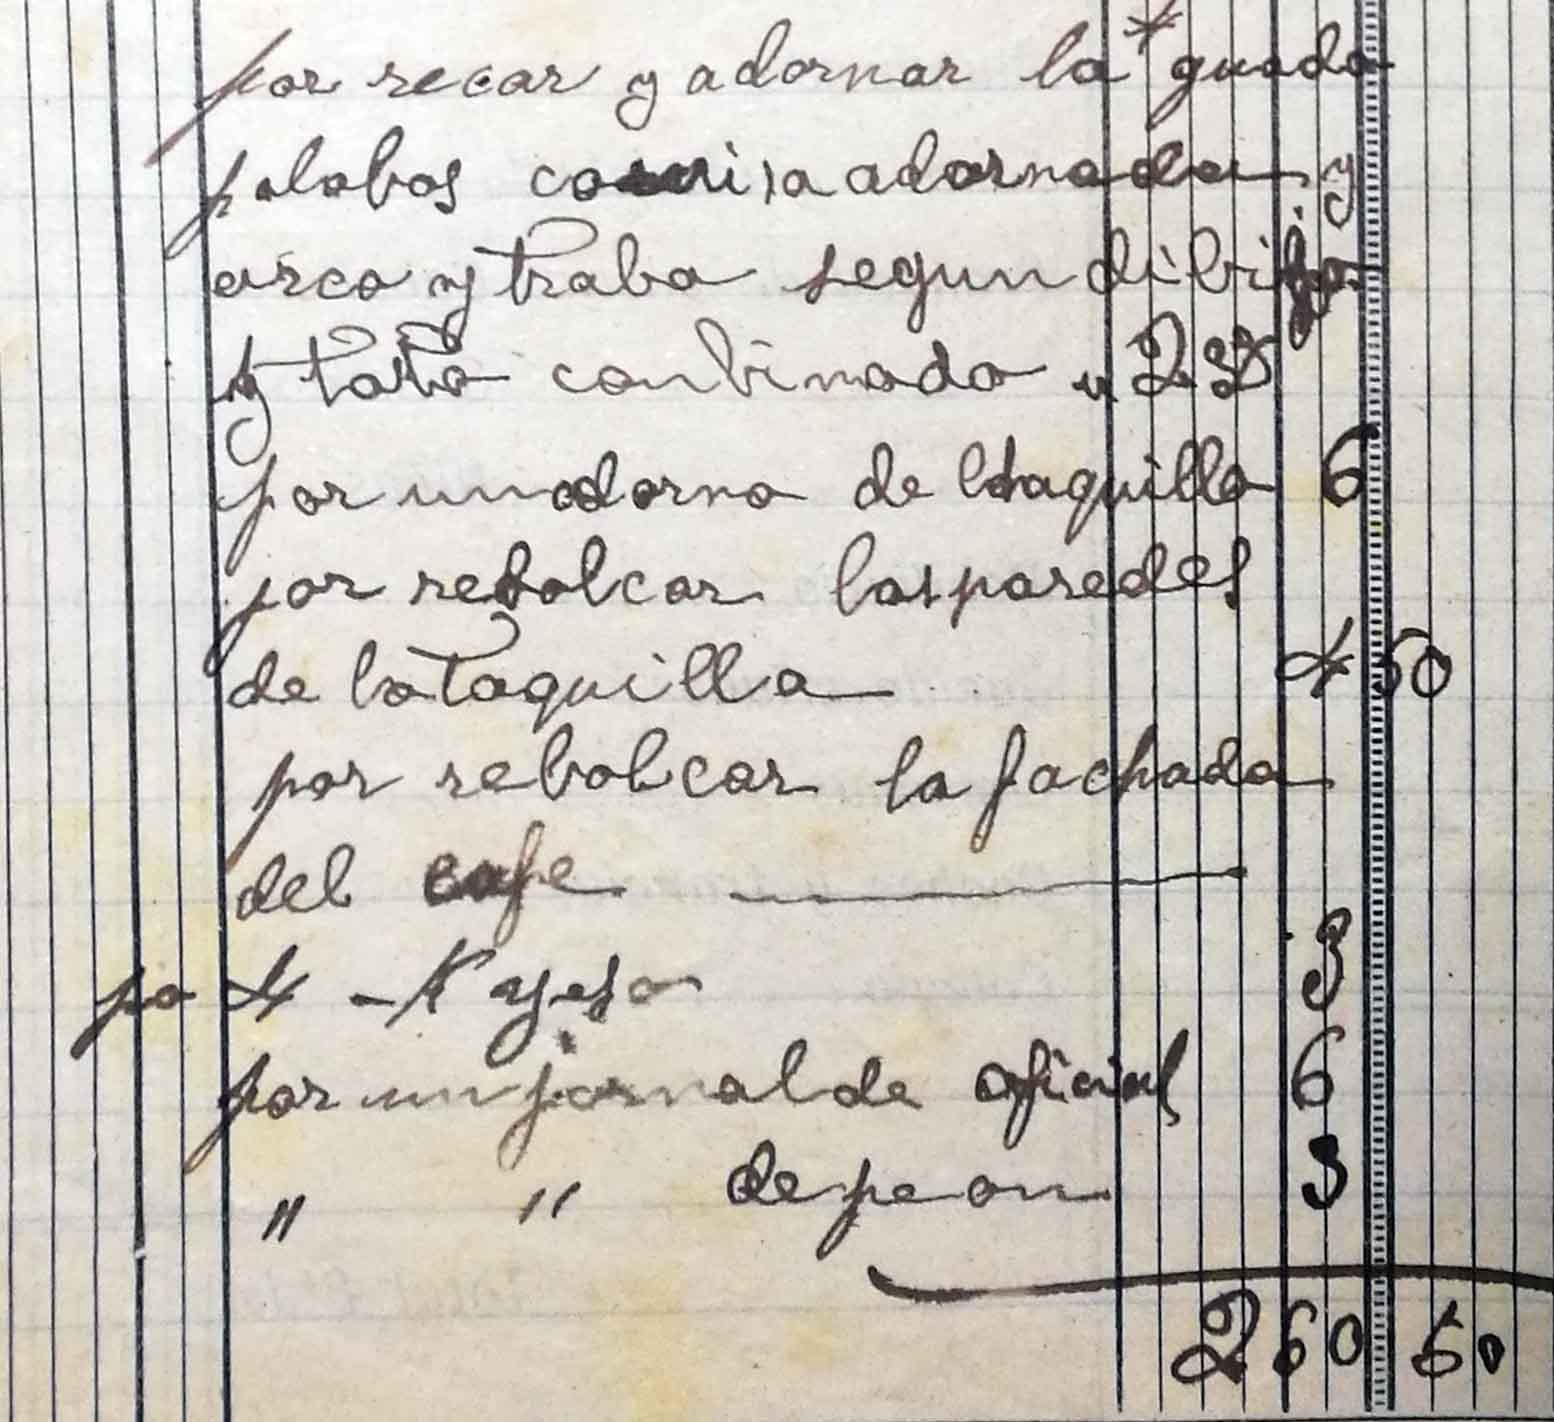 por recar y adornar la guada
palabos cornisa adornada y
arco y traba segun dibujo
y trato conbinado 23
por un adorno de la taquilla 6
por rebolcar las paredes
de la Taquilla 4 50
por rebolcar la fachada
del cafe
po 4 - K yeso 3
por un jornal de oficial 6
" " de peon 3
260 50